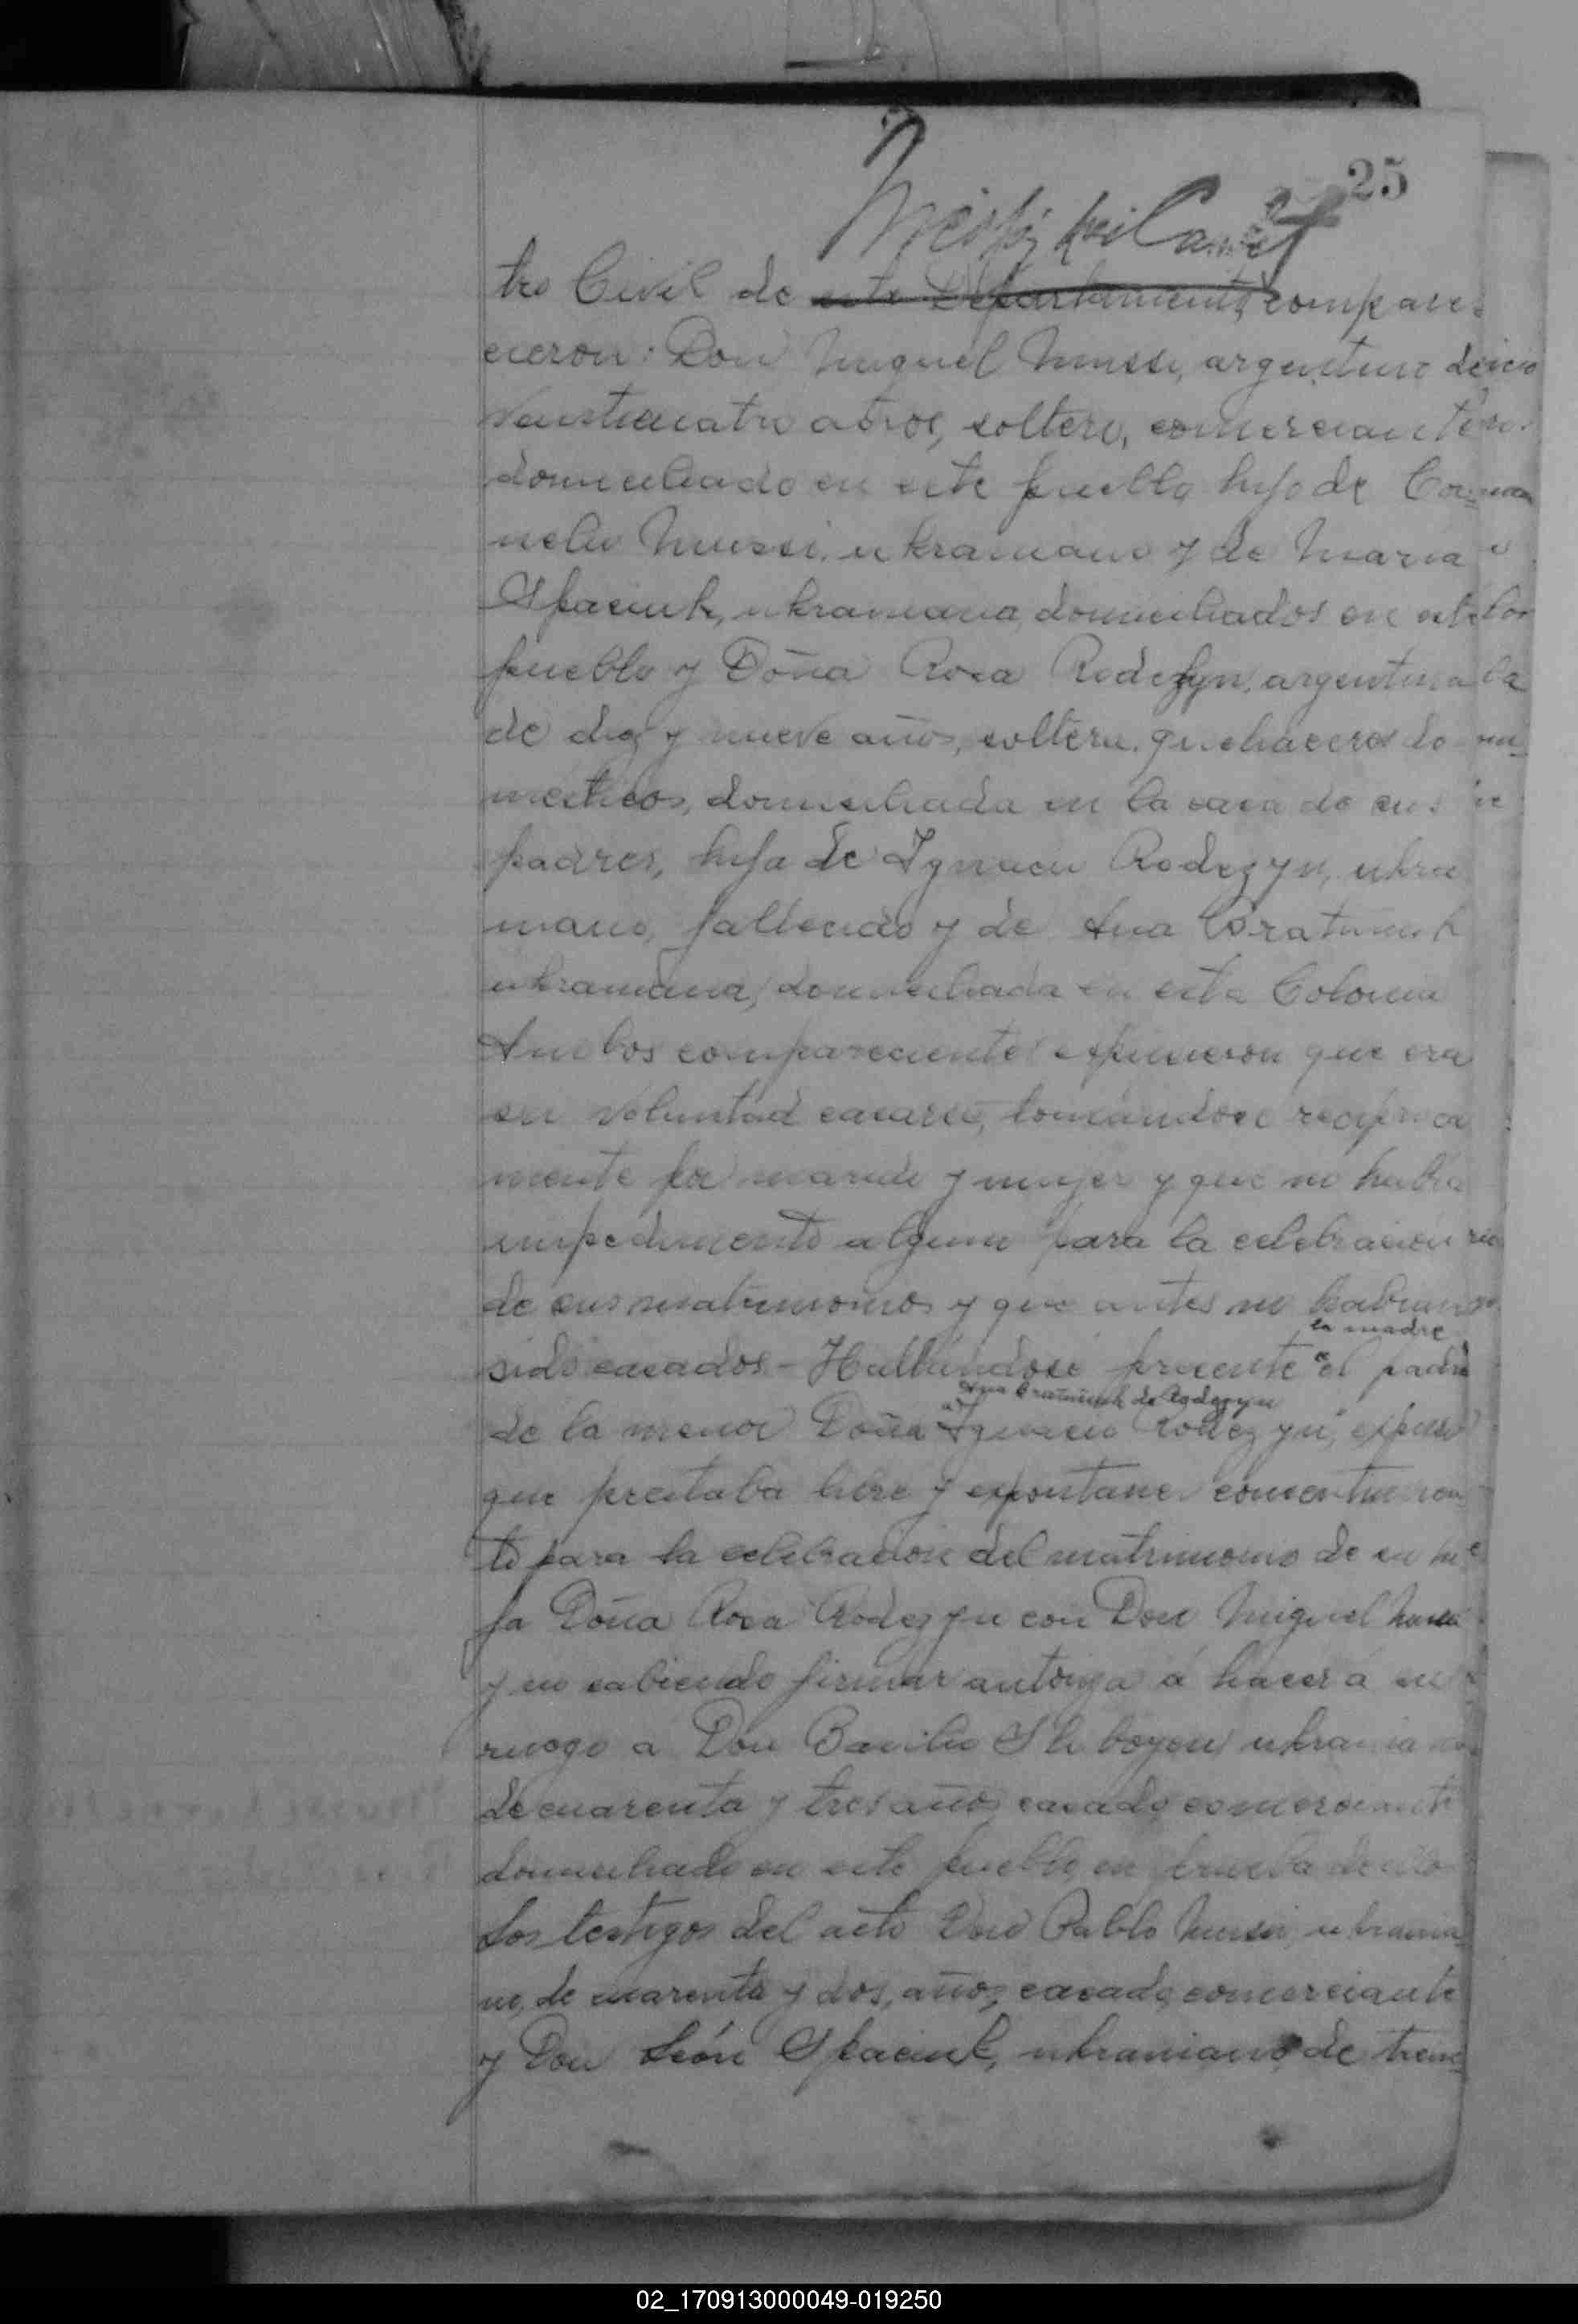 25
tro Civil de este Departamento compare-
cieron: Don Miguel Mussi, argentino de
veinticuatro años, soltero, comerciante
domiciliado en este pueblo, hijo de Cor-
nelio Mussi, ukraniano y de Maria
Spaciuk, ukraniana, domiciliados en este
pueblo y Doña Rosa Rodezyn, argentina
de diez y nueve años, soltera, quehaceres do-
mesticos, domiciliada en la casa de sus
padres, hija de Ignacio Rodezyn, ukra
niano, fallecido y de Ana
ukraniana, domiciliada en esta Colonia
Ambos comparecientes expusieron que era
su voluntad casarse, tomándose reciproca
mente por marido y mujer y que no habia
impedimento alguno para la celebracion
de sus matrimonios y que antes no habian
la madre
sido casados - Hallándose presente el padre
Ana de Rodezyn
de la menor Doña Ignacio Rodezyn, expuso
que prestaba libre y espontaneo consentimien
to para la celebracion del matrimonio de su hi
ja Doña Rosa Rodezyn con Don Miguel Mussi
y no sabiendo firmar autoriza á hacer á su
ruego a Don Basilio ukraniano
de cuarenta y tres años, casado, comerciante
domiciliado en este pueblo, en prueba de ello
Los testigos del acto Don Pablo Mussi, ukrania-
no, de cuarenta y dos, años, casado, comerciante
y Don León Spaciuk, ukraniano, de trein-
02_170913000049-019250